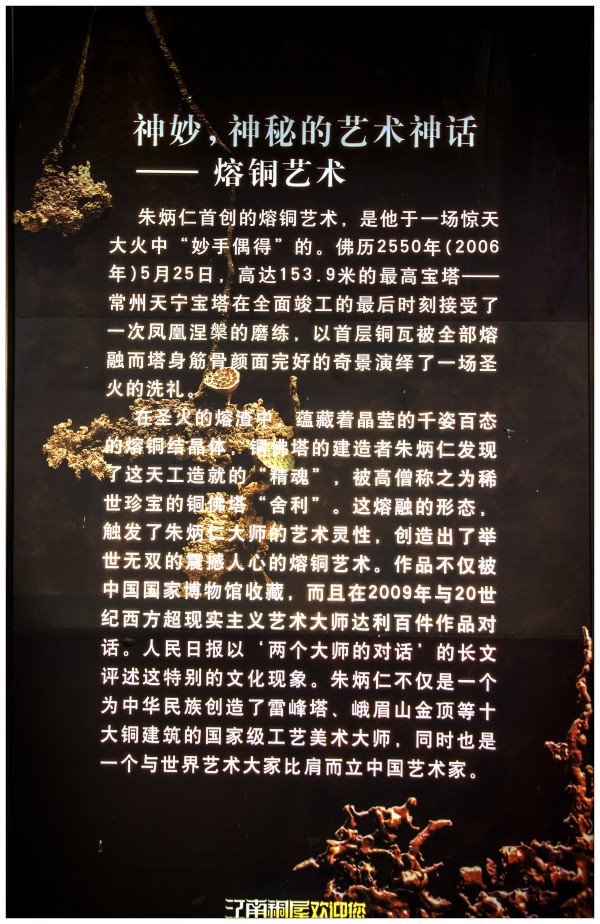 神妙，神秘的艺术神话
—— 熔铜艺术
朱炳仁首创的熔铜艺术，是他于一场惊天
大火中“妙手偶得”的。佛历2550年(2006
年)5月25日，高达153.9米的最高宝塔——
常州天宁宝塔在全面竣工的最后时刻接受了
一次凤凰涅槃的磨练，以首层铜瓦被全部熔
融而塔身筋骨颜面完好的奇景演绎了一场圣
火的洗礼。
在圣火的熔渣中，蕴藏着晶莹的千姿百态
的熔铜结晶体，铜佛塔的建造者朱炳仁发现
了这天工造就的“精魂”，被高僧称之为稀
世珍宝的铜佛塔“舍利”。这熔融的形态，
触发了朱炳仁大师的艺术灵性，创造出了举
世无双的震撼人心的熔铜艺术。作品不仅被
中国国家博物馆收藏，而且在2009年与20世
纪西方超现实主义艺术大师达利百件作品对
话。人民日报以‘两个大师的对话’的长文
评述这特别的文化现象。朱炳仁不仅是一个
为中华民族创造了雷峰塔、峨眉山金顶等十
大铜建筑的国家级工艺美术大师，同时也是
一个与世界艺术大家比肩而立中国艺术家。
欢迎您